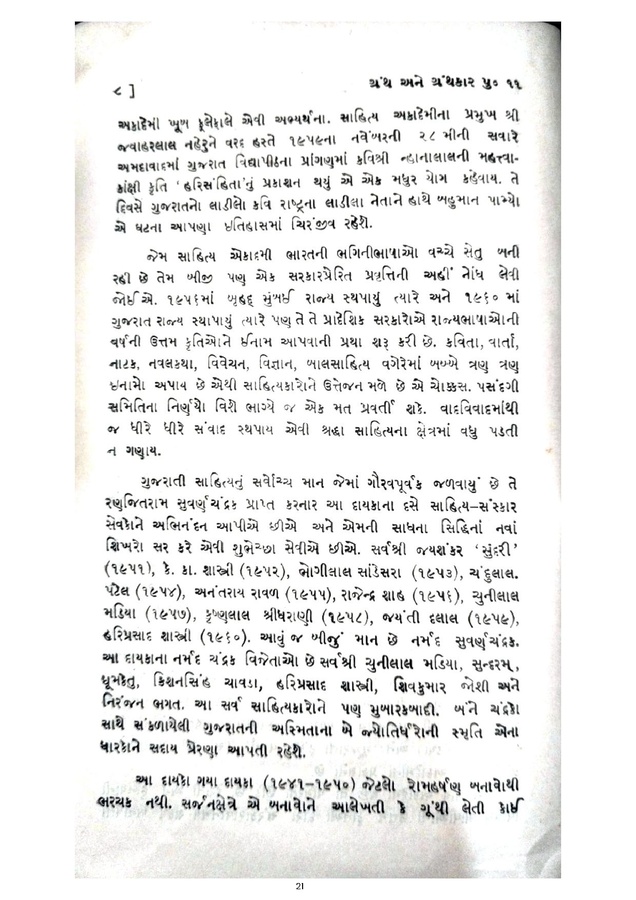 ૮ ]
ગ્રંથ અને ગ્રંથકાર પુ૦ ૧૧
અકાદેમી ખૂબ ફૂલેફાલે એવી અભ્યર્થના. સાહિત્ય અકાદેમીના પ્રમુખ શ્રી
જવાહરલાલ નહેરુને વરદ હસ્તે ૧૯૫૯ના નવેંબરની ૨૮ મીની સવારે
અમદાવાદમાં ગુજરાત વિદ્યાપીઠના પ્રાંગણમાં કવિશ્રી ન્હાનાલાલની મહત્ત્વા-
કાંક્ષી કૃતિ ‘હરિસંહિતા’નું પ્રકાશન થયું એ એક મધુર યોગ કહેવાય. તે
દિવસે ગુજરાતનો લાડીલો કવિ રાષ્ટ્રના લાડીલા નેતાને હાથે બહુમાન પામ્યો
એ ઘટના આપણા ઇતિહાસમાં ચિરંજીવ રહેશે.
જેમ સાહિત્ય એકાદમી ભારતની ભગિનીભાષાઓ વચ્ચે સેતુ બની
રહી છે તેમ બીજી પણ એક સરકારપ્રેરિત પ્રવૃત્તિની અહીં નોંધ લેવી
જોઈએ. ૧૯૫૬માં બૃહદ્ મુંબઈ રાજ્ય સ્થપાયું ત્યારે અને ૧૯૬૦ માં
ગુજરાત રાજ્ય સ્થાપાયું ત્યારે પણ તે તે પ્રાદેશિક સરકારોએ રાજ્યભાષાઓની
વર્ષની ઉત્તમ કૃતિઓને ઈનામ આપવાની પ્રથા શરૂ કરી છે. કવિતા, વાર્તા,
નાટક, નવલકથા, વિવેચન, વિજ્ઞાન, બાલસાહિત્ય વગેરેમાં બબ્બે ત્રણ ત્રણ
ઇનામો અપાય છે એથી સાહિત્યકારોને ઉત્તેજન મળે છે એ ચોક્કસ. પસંદગી
સમિતિના નિર્ણયો વિશે ભાગ્યે જ એક મત પ્રવર્તી શકે. વાદવિવાદમાંથી
જ ધીરે ધીરે સંવાદ સ્થપાય એવી શ્રદ્ધા સાહિત્યના ક્ષેત્રમાં વધુ પડતી
ન ગણાય.
ગુજરાતી સાહિત્યનું સર્વોચ્ચ માન જેમાં ગૌરવપૂર્વક જળવાયું છે તે
રણજિતરામ સુવર્ણચંદ્રક પ્રાપ્ત કરનાર આ દાયકાના દસે સાહિત્ય-સંસ્કાર
સેવકોને અભિનંદન આપીએ છીએ અને એમની સાધના સિદ્ધિનાં નવાં
શિખરો સર કરે એવી શુભેચ્છા સેવીએ છીએ. સર્વશ્રી જયશંકર ‘સુંદરી’
(૧૯૫૧), કે. કા. શાસ્ત્રી (૧૯૫૨), ભોગીલાલ સાંડેસરા (૧૯૫૩), ચંદુલાલ.
પટેલ (૧૯૫૪), અનંતરાય રાવળ (૧૯૫૫), રાજેન્દ્ર શાહ (૧૯૫૬), ચુનીલાલ
મડિયા (૧૯૫૭), કૃષ્ણલાલ શ્રીધરાણી (૧૯૫૮), જયંતી દલાલ (૧૯૫૯),
હરિપ્રસાદ શાસ્ત્રી (૧૯૬૦). આવું જ બીજું માન છે નર્મદ સુવર્ણચંદ્રક.
આ દાયકાના નર્મદ ચંદ્રક વિજેતાઓ છે સર્વશ્રી ચુનીલાલ મડિયા, સુન્દરમ્,
ધૂમકેતુ, કિશનસિંહ ચાવડા, હરિપ્રસાદ શાસ્ત્રી, શિવકુમાર જોશી અને
નિરંજન ભગત. આ સર્વ સાહિત્યકારોને પણ મુબારકબાદી. બંને ચંદ્રકો
સાથે સંકળાયેલી ગુજરાતની અસ્મિતાના બે જ્યોતિર્ધરોની સ્મૃતિ એના
ધારકોને સદાય પ્રેરણા આપતી રહેશે.
આ દાયકો ગયા દાયકા (૧૯૪૧–૧૯૫૦) જેટલો રોમહર્ષણ બનાવોથી
ભરચક નથી. સર્જનક્ષેત્રે એ બનાવોને આલેખતી કે ગૂંથી લેતી કોઈ
21